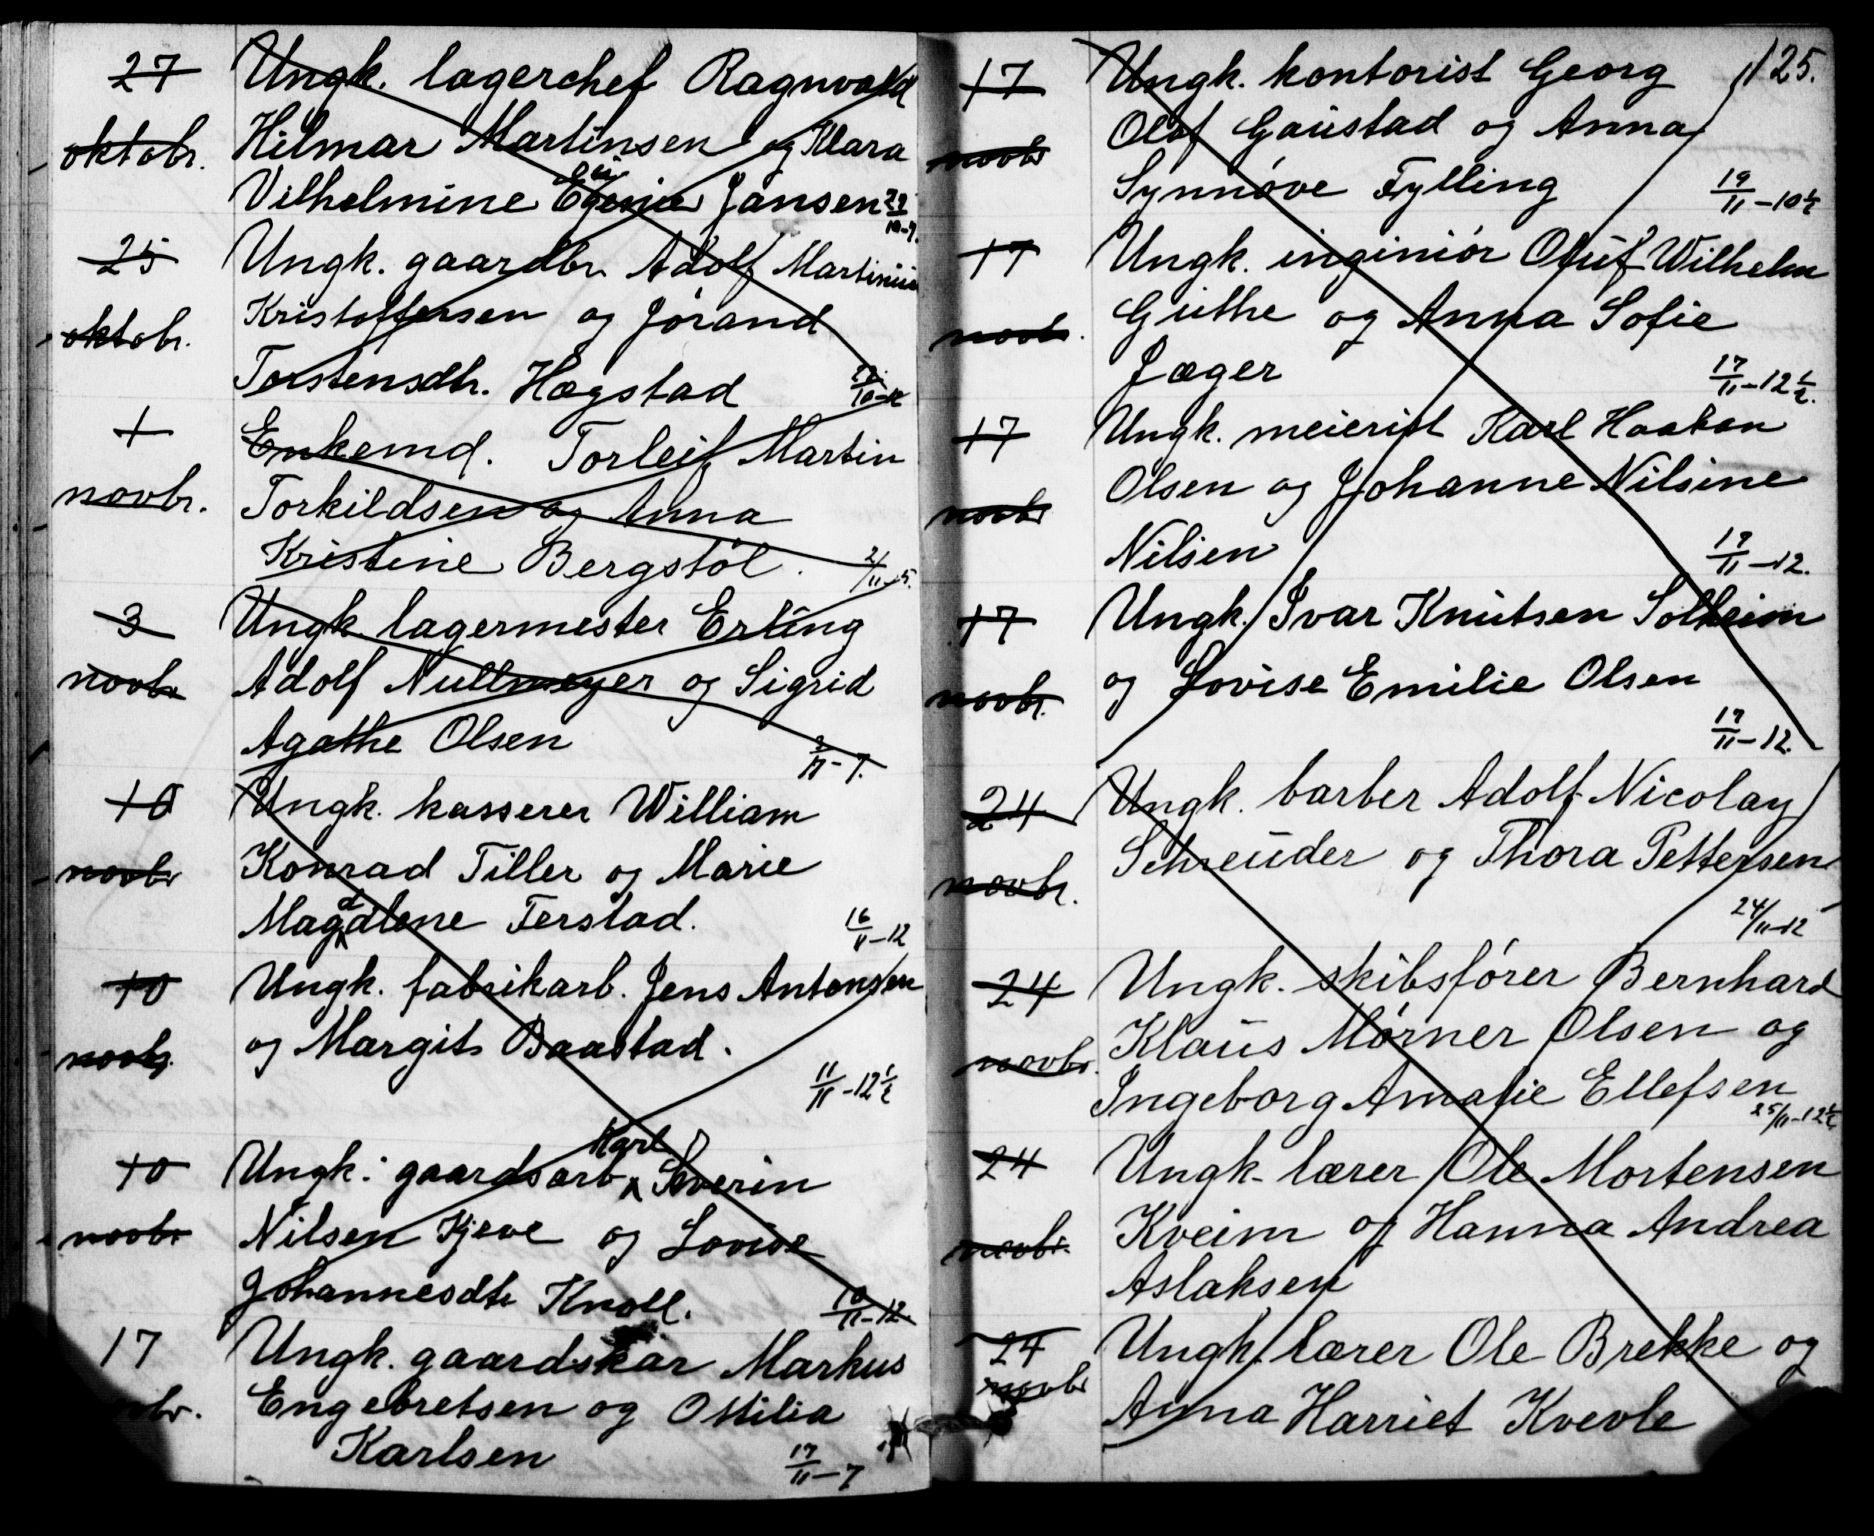 27 Ungk. lagerchef Ragnvald
oktobr. Hilmar Martinsen og Klara
Vilhelmine Eugenie Jansen 29/10-7.
25 Ungk. gaardbr. Adolf Martinius
oktobr. Kristoffersen og Jørand
Torstensdtr. Hægstad
1 Enkemd. Torleif Martin
novbr. Torkildsen og Anna
Kristine Bergstøl. 2/11-5.
3 Ungk. lagermester Erling
novbr Adolf Nullmeyer og Sigrid
Agathe Olsen 3/11-7.
10 Ungk. kasserer William
novbr Konrad Tiller og Marie
Magdalene Ferstad. 16/11-12
10 Ungk. fabrikarb. Jens Antonsen
novbr. og Margit Baastad. 11/11-12½
10 Ungk. gaardsarb. Karl Severin
novbr Nilsen Kjeve og Lovise
Johannesdtr Knoll. 10/11-12
17 Ungk. gaardskar Markus
novbr. Engebretsen og Ottilia
Karlsen 17/11-7
125.
17 Ungk. kontorist Georg
novbr Olaf Gaustad og Anna
Synnøve Fylling 19/11-10½
17 Ungk. inginiør Oluf Wilhelm
novbr. Guthe og Anna Sofie
Jæger 17/11-12½.
17 Ungk. meierist Karl Haakon
novbr Olsen og Johanne Nilsine
Nilsen 17/11-12.
17 Ungk. Ivar Knutsen Solheim
novbr. og Lovise Emilie Olsen
17/11-12.
24 Ungk. barber Adolf Nicolay
novbr. Schreuder og Thora Pettersen
24/11-12
24 Ungk. skibsfører Bernhard
novbr. Klaus Mørner Olsen og
Ingeborg Amalie Ellefsen
25/11-12½
24 Ungk. lærer Ole Mortensen
novbr. Kveim og Hanna Andrea
Aslaksen
24 Ungk. lærer Ole Brekke og
novbr Anna Harriet Kvevle